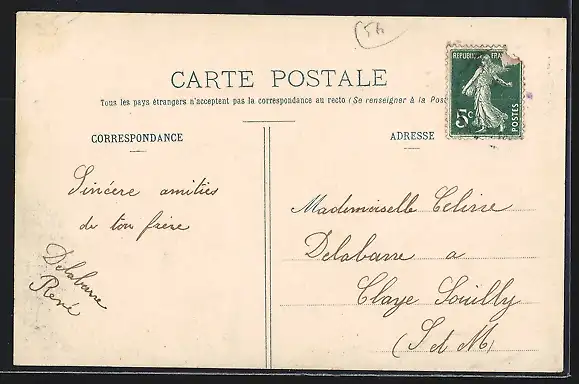 54
CARTE POSTALE
Tous les pays étrangers n'acceptent pas la correspondance au recto (Se renseigner à la Post
REPUBLIQUE FRA
5c
POSTES
CORRESPONDANCE
ADRESSE
Sincère amitiés
de ton frère
Delabarre
René
Mademoiselle Celine
Delabarre a
Claye Souilly
(S d M)